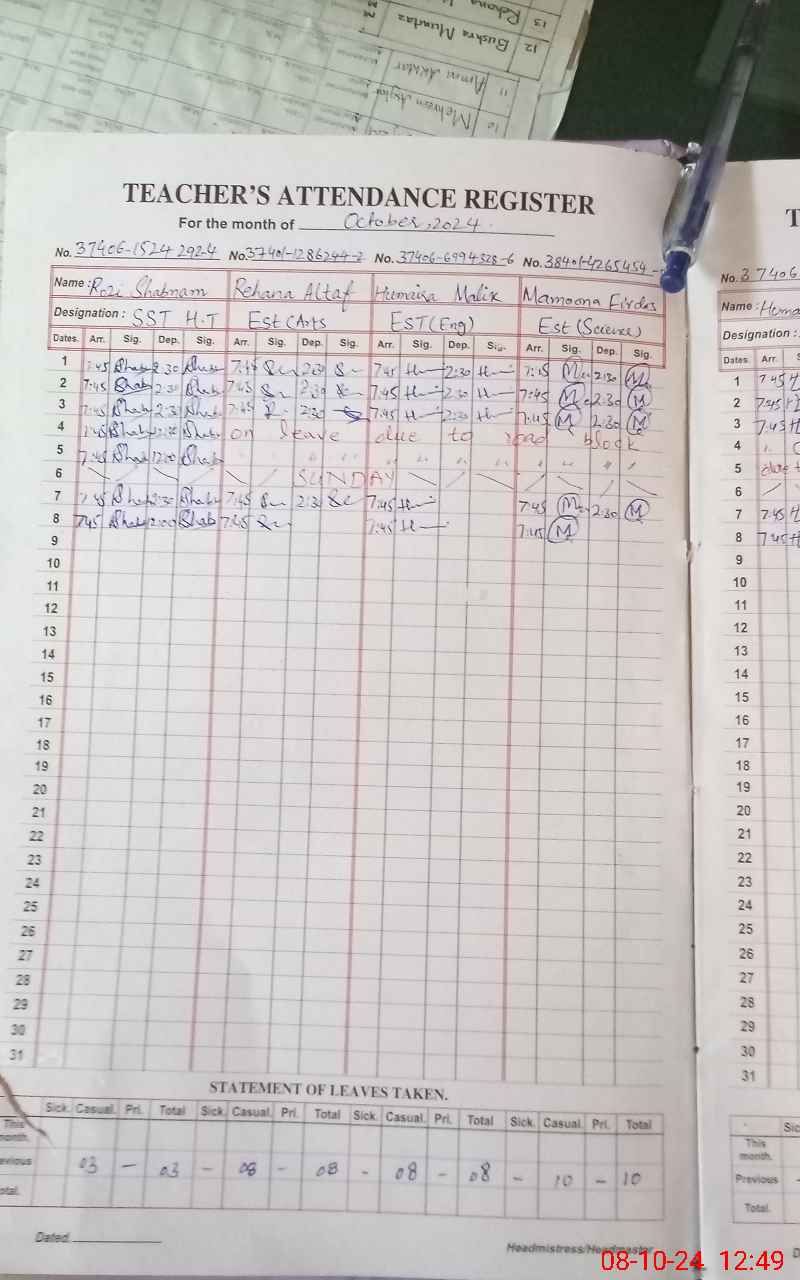 13 Rehana
12 Bushra Mumtaz
11
10 Mehreen
TEACHER'S ATTENDANCE REGISTER
For the month of October, 2024.
No. 37406-1524292-4 No. 37401-1286244-2 No. 37406-6994328-6 No. 38401-4265454-
No. 37406
Name: Rozi Shabnam Rehana Altaf Humaira Malik Mamoona Firdos
Name: Huma
Designation: SST H.T Est (Arts EST (Eng) Est (Science)
Designation:
Dates. Arr. Sig. Dep. Sig. Arr. Sig. Dep. Sig. Arr. Sig. Dep. Sig. Arr. Sig. Dep. Sig.
Dates. Arr. S
1 7:45 Shab 2:30 Shab 7:45 2:30 7:45 H 2:30 H 7:45 M 2:30 M
1 7:45 H
2 7:45 Shab 2:30 Shab 7:45 2:30 7:45 H 2:30 H 7:45 M 2:30 M
2 7:45 H
3 7:45 Shab 2:30 Shab 7:45 2:30 7:45 H 2:30 H 7:45 M 2:30 M
3 7:45 H
4 7:45 Shab 12:00 Shab on leave due to road block
4
5 7:45 Shab 12:00 Shab " " " " " "
5 due t
6 SUNDAY
6
7 7:45 Shab 2:30 Shab 7:45 2:30 7:45 H 7:45 M 2:30 M
7 7:45 H
8 7:45 Shab 2:00 Shab 7:45 7:45 H 7:45 M
8 7:45 H
9
9
10
10
11
11
12
12
13
13
14
14
15
15
16
16
17
17
18
18
19
19
20
20
21
21
22
22
23
23
24
24
25
25
26
26
27
27
28
28
29
29
30
30
31
31
STATEMENT OF LEAVES TAKEN.
Sick. Casual. Pri. Total Sick. Casual. Pri. Total Sick. Casual. Pri. Total Sick. Casual. Pri. Total
Sic
This month.
This month.
evious 03 - 03 - 08 - 08 - 08 - 08 - 10 - 10
Previous
otal.
Total.
Dated.
Headmistress/Headmaster
D
08-10-24 12:49